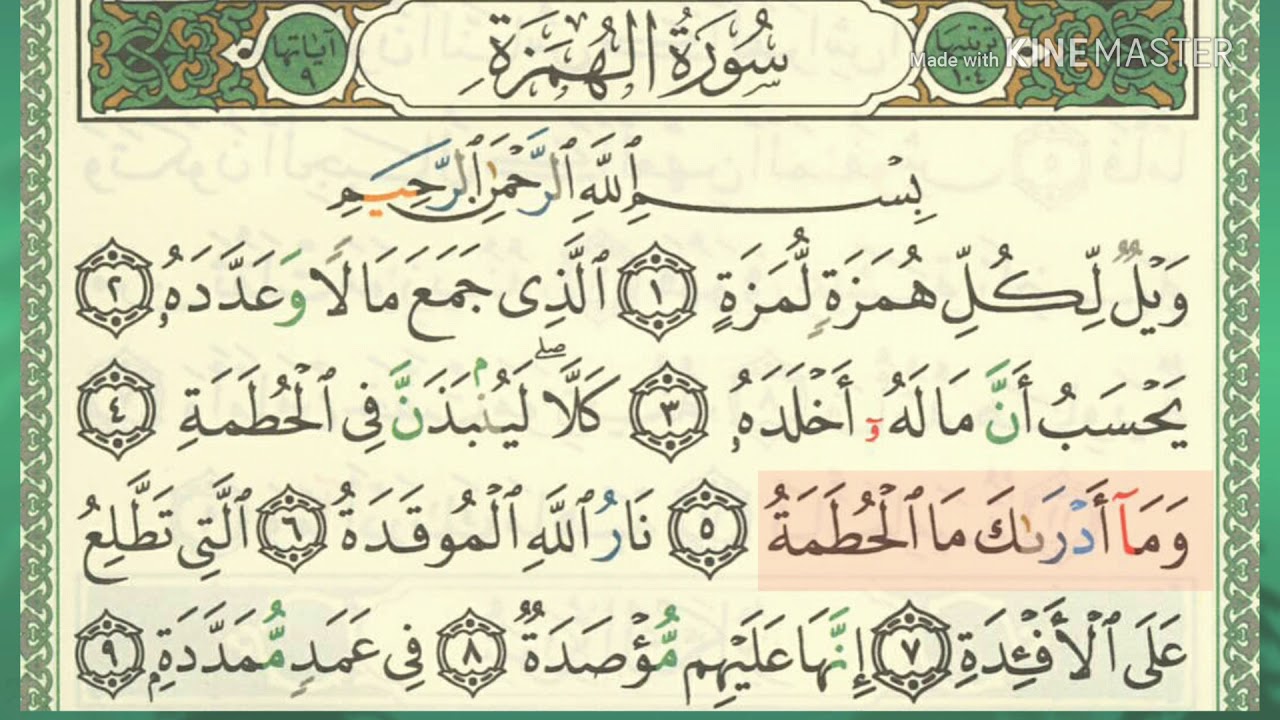 آياتها ٩ سُورَةُ الْهُمَزَةِ ترتيبها ١٠٤
Made with KINEMASTER
بِسْمِ ٱللَّهِ ٱلرَّحْمَٰنِ ٱلرَّحِيمِ
وَيْلٌ لِّكُلِّ هُمَزَةٍ لُّمَزَةٍ ١ ٱلَّذِى جَمَعَ مَالًا وَعَدَّدَهُۥ ٢
يَحْسَبُ أَنَّ مَالَهُۥٓ أَخْلَدَهُۥ ٣ كَلَّا ۖ لَيُنۢبَذَنَّ فِى ٱلْحُطَمَةِ ٤
وَمَآ أَدْرَىٰكَ مَا ٱلْحُطَمَةُ ٥ نَارُ ٱللَّهِ ٱلْمُوقَدَةُ ٦ ٱلَّتِى تَطَّلِعُ
عَلَى ٱلْأَفْـِٔدَةِ ٧ إِنَّهَا عَلَيْهِم مُّؤْصَدَةٌ ٨ فِى عَمَدٍ مُّمَدَّدَةٍۭ ٩